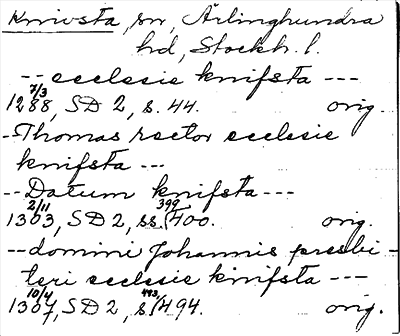 Knivsta, sn, Ärlinghundra
hd, Stockh. l.
-- ecclesie knifsta ---
7/3
1288, SD 2, s. 44. orig.
-Thomas rector ecclesie
knifsta ---
-- Datum knifsta ---
2/11 399
1303, SD 2, ss./400. orig.
-- domini Johannis presbi-
teri ecclesie knifsta ---
10/4 493
1307, SD 2, s/494. orig.